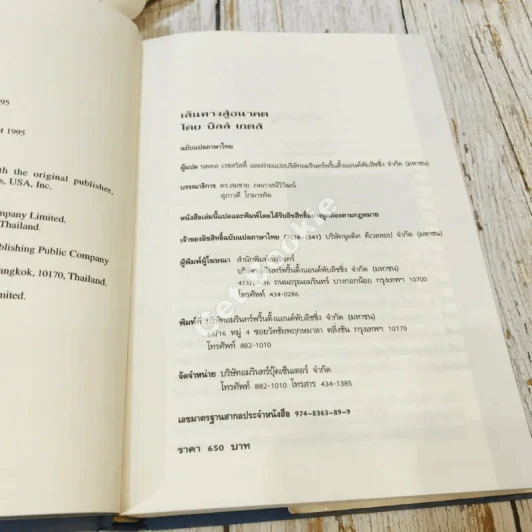 95
t 1995
th the original publisher,
s, USA, Inc.
mpany Limited.
Thailand.
blishing Public Company
angkok, 10170, Thailand.
imited.
เส้นทางสู่อนาคต
โดย บิลล์ เกตส์
ฉบับแปลภาษาไทย
ผู้แปล นพดล เวชสวัสดิ์ และฝ่ายแปลบริษัทอมรินทร์พริ้นติ้งแอนด์พับลิชชิ่ง จำกัด (มหาชน)
บรรณาธิการ ดร.สมชาย ภคภาสน์วิวัฒน์
สุภาวดี โกมารทัต
หนังสือเล่มนี้แปลและพิมพ์โดยได้รับลิขสิทธิ์อย่างถูกต้องตามกฎหมาย
เจ้าของลิขสิทธิ์ฉบับแปลภาษาไทย บริษัทจูลดิศ ดีเวลลอป จำกัด (มหาชน)
ผู้พิมพ์ผู้โฆษณา สำนักพิมพ์อมรินทร์
บริษัทอมรินทร์พริ้นติ้งแอนด์พับลิชชิ่ง จำกัด (มหาชน)
ถนนอรุณอมรินทร์ บางกอกน้อย กรุงเทพฯ 10700
โทรศัพท์ 434-0286
พิมพ์ที่ บริษัทอมรินทร์พริ้นติ้งแอนด์พับลิชชิ่ง จำกัด (มหาชน)
65/16 หมู่ 4 ซอยวัดชัยพฤกษมาลา ตลิ่งชัน กรุงเทพฯ 10170
โทรศัพท์ 882-1010
จัดจำหน่าย บริษัทอมรินทร์บุ๊คเซ็นเตอร์ จำกัด
โทรศัพท์ 882-1010 โทรสาร 434-1385
เลขมาตรฐานสากลประจำหนังสือ 974-8363-89-9
ราคา 650 บาท
Get Bookie